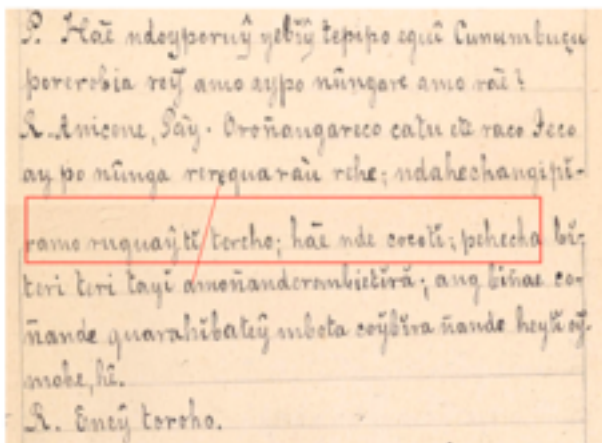 P. Haẽ ndoyporuŷ yebĩŷ tepipo eguĩ Cunumbuçu
porerobia reŷ amo aypo nûngare amo raê?
R. Anicone, Pây. Oroñangareco catu etê raco Jeco
ay po nûnga rerequaraû rehe; ndahechangipĩ-
ramo ruguaŷ tĩ tereho; haẽ nde cocotĩ; pehecha bĩ-
teri teri tayĩ amoñanderombietĩrã; ang bĩnae co-
ñande quarahĩbateŷ mbota coŷbĩra ñande heytĩ
mobe, hê.
R. Eneŷ toroho.